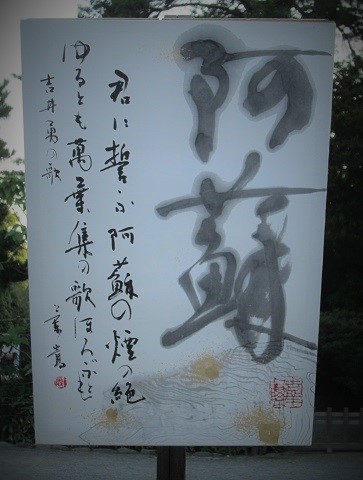 阿蘇
君に誓ふ阿蘇の煙の絶
ゆるとも萬葉集の歌ほろぶとも
吉井勇の歌